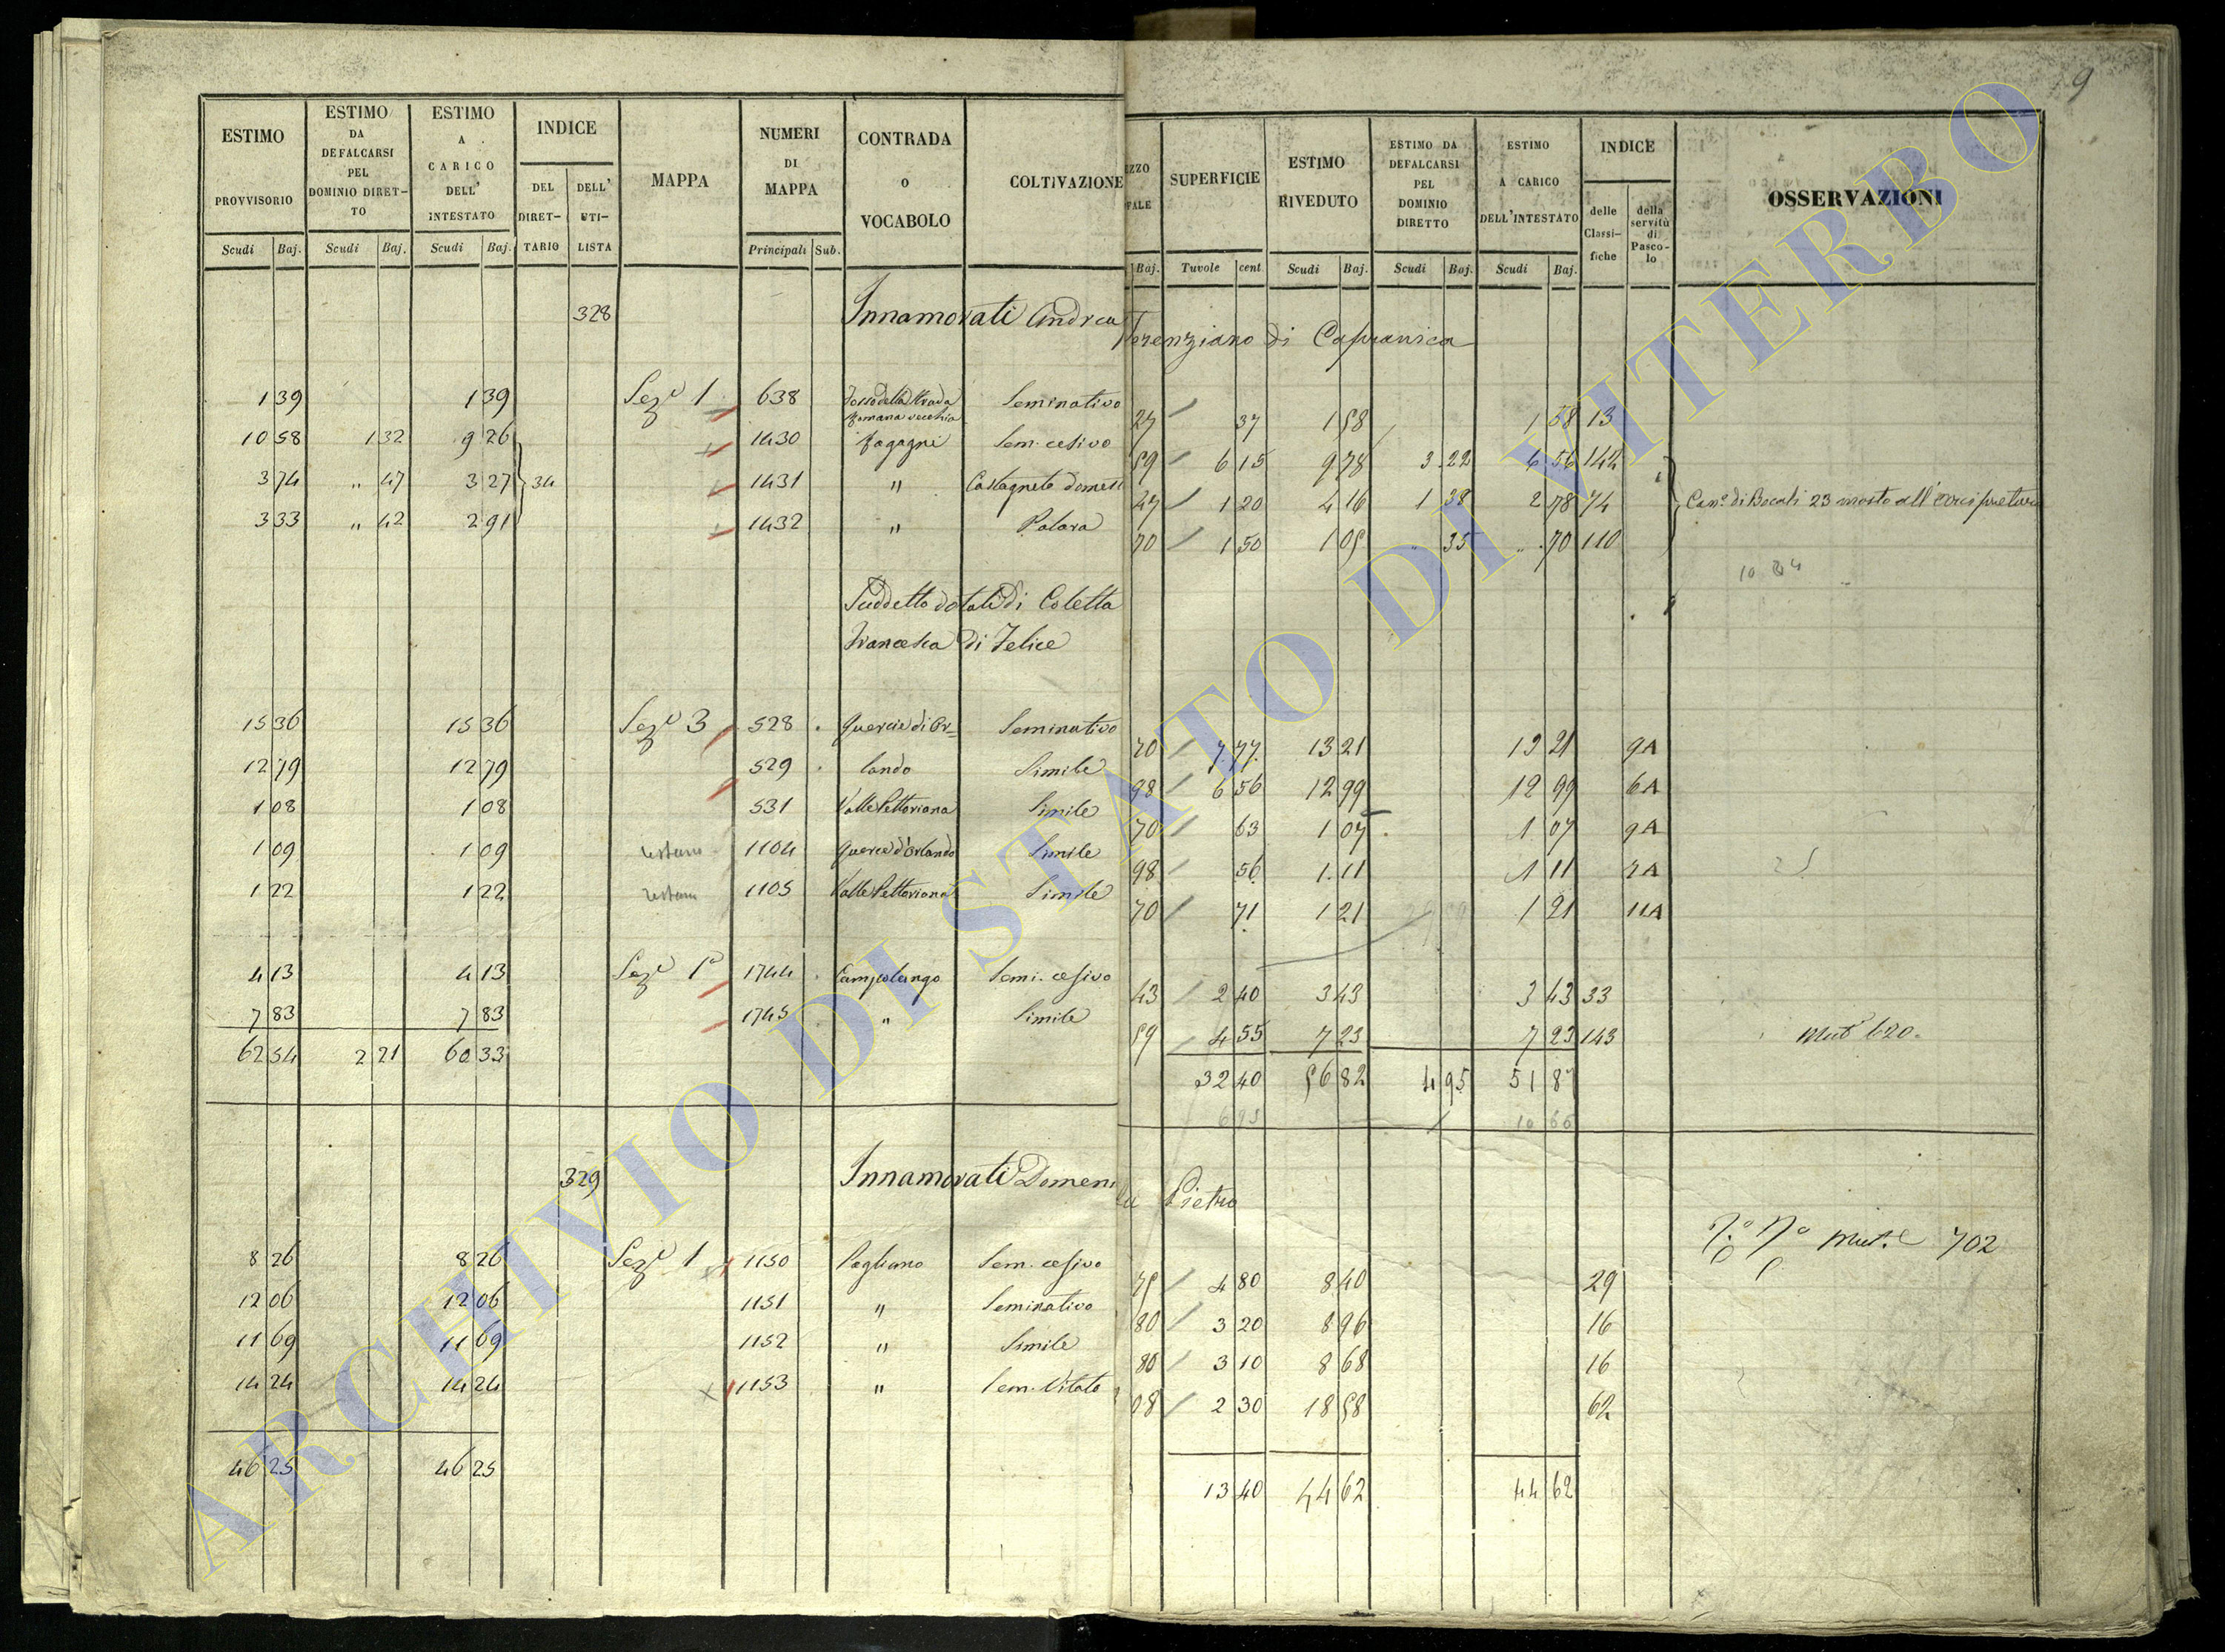 9
ESTIMO PROVVISORIO
ESTIMO DA DEFALCARSI PEL DOMINIO DIRET-TO
ESTIMO A CARICO DELL' INTESTATO
INDICE
DEL DIRET-TARIO
DELL' UTI-LISTA
MAPPA
NUMERI DI MAPPA
CONTRADA O VOCABOLO
COLTIVAZIONE
Scudi Baj. Scudi Baj. Scudi Baj. Principali Sub.
SUPERFICIE
ESTIMO RIVEDUTO
ESTIMO DA DEFALCARSI PEL DOMINIO DIRETTO
ESTIMO A CARICO DELL'INTESTATO
INDICE
delle Classi-fiche
della servitù di Pasco-lo
OSSERVAZIONI
Baj. Tavole cent. Scudi Baj. Scudi Baj. Scudi Baj.
328 Innamorati Andrea Terenziano di Capranica
1 39 1 39 Sez.e 1 638 Fosso della Strada Romana vecchia Seminativo 37 1 58 1 58 13
10 58 1 32 9 26 1430 Sem. cesivo 59 6 15 9 78 3 22 6 56 144
3 74 " 47 3 27 34 1431 " Castagneto domest 1 20 4 16 1 38 2 78 74 di Bocali 23 mosto all'
3 33 " 42 2 91 1432 " 70 1 50 1 05 " 35 " 70 110
Suddetto dotali di Coletta
Francesca di Felice
15 36 15 36 Sez.e 3 528 Quercie di Or= Seminativo 70 7 77 13 21 13 21 9A
12 79 12 79 529 lando Simile 98 6 56 12 99 12 99 6A
1 08 1 08 531 Valle Pettoriana Simile 70 63 1 07 1 07 9A
1 09 1 09 1104 Quercie d'Orlando Simile 98 56 1 11 1 11
1 22 1 22 1105 Valle Pettoriana Simile 70 71 1 21 1 21 11A
4 13 4 13 Sez.e 1a 1744 Campolungo Semi. cesivo 43 2 40 3 43 3 43 33
7 83 7 83 1745 " Simile 59 4 55 7 23 7 23 143 620
62 54 2 21 60 33 32 40 56 82 4 95 51 87
329 Innamorati Pietro
702
8 26 8 26 Sez.e 1 1150 Pogliano Sem. cesivo 75 4 80 8 40 29
12 06 12 06 1151 " Seminativo 80 3 20 8 96 16
11 69 11 69 1152 " Simile 80 3 10 8 68 16
14 24 14 24 1153 " Sem. Vitato 08 2 30 18 58 62
46 25 46 25 13 40 44 62 44 62
ARCHIVIO DI STATO DI VITERBO